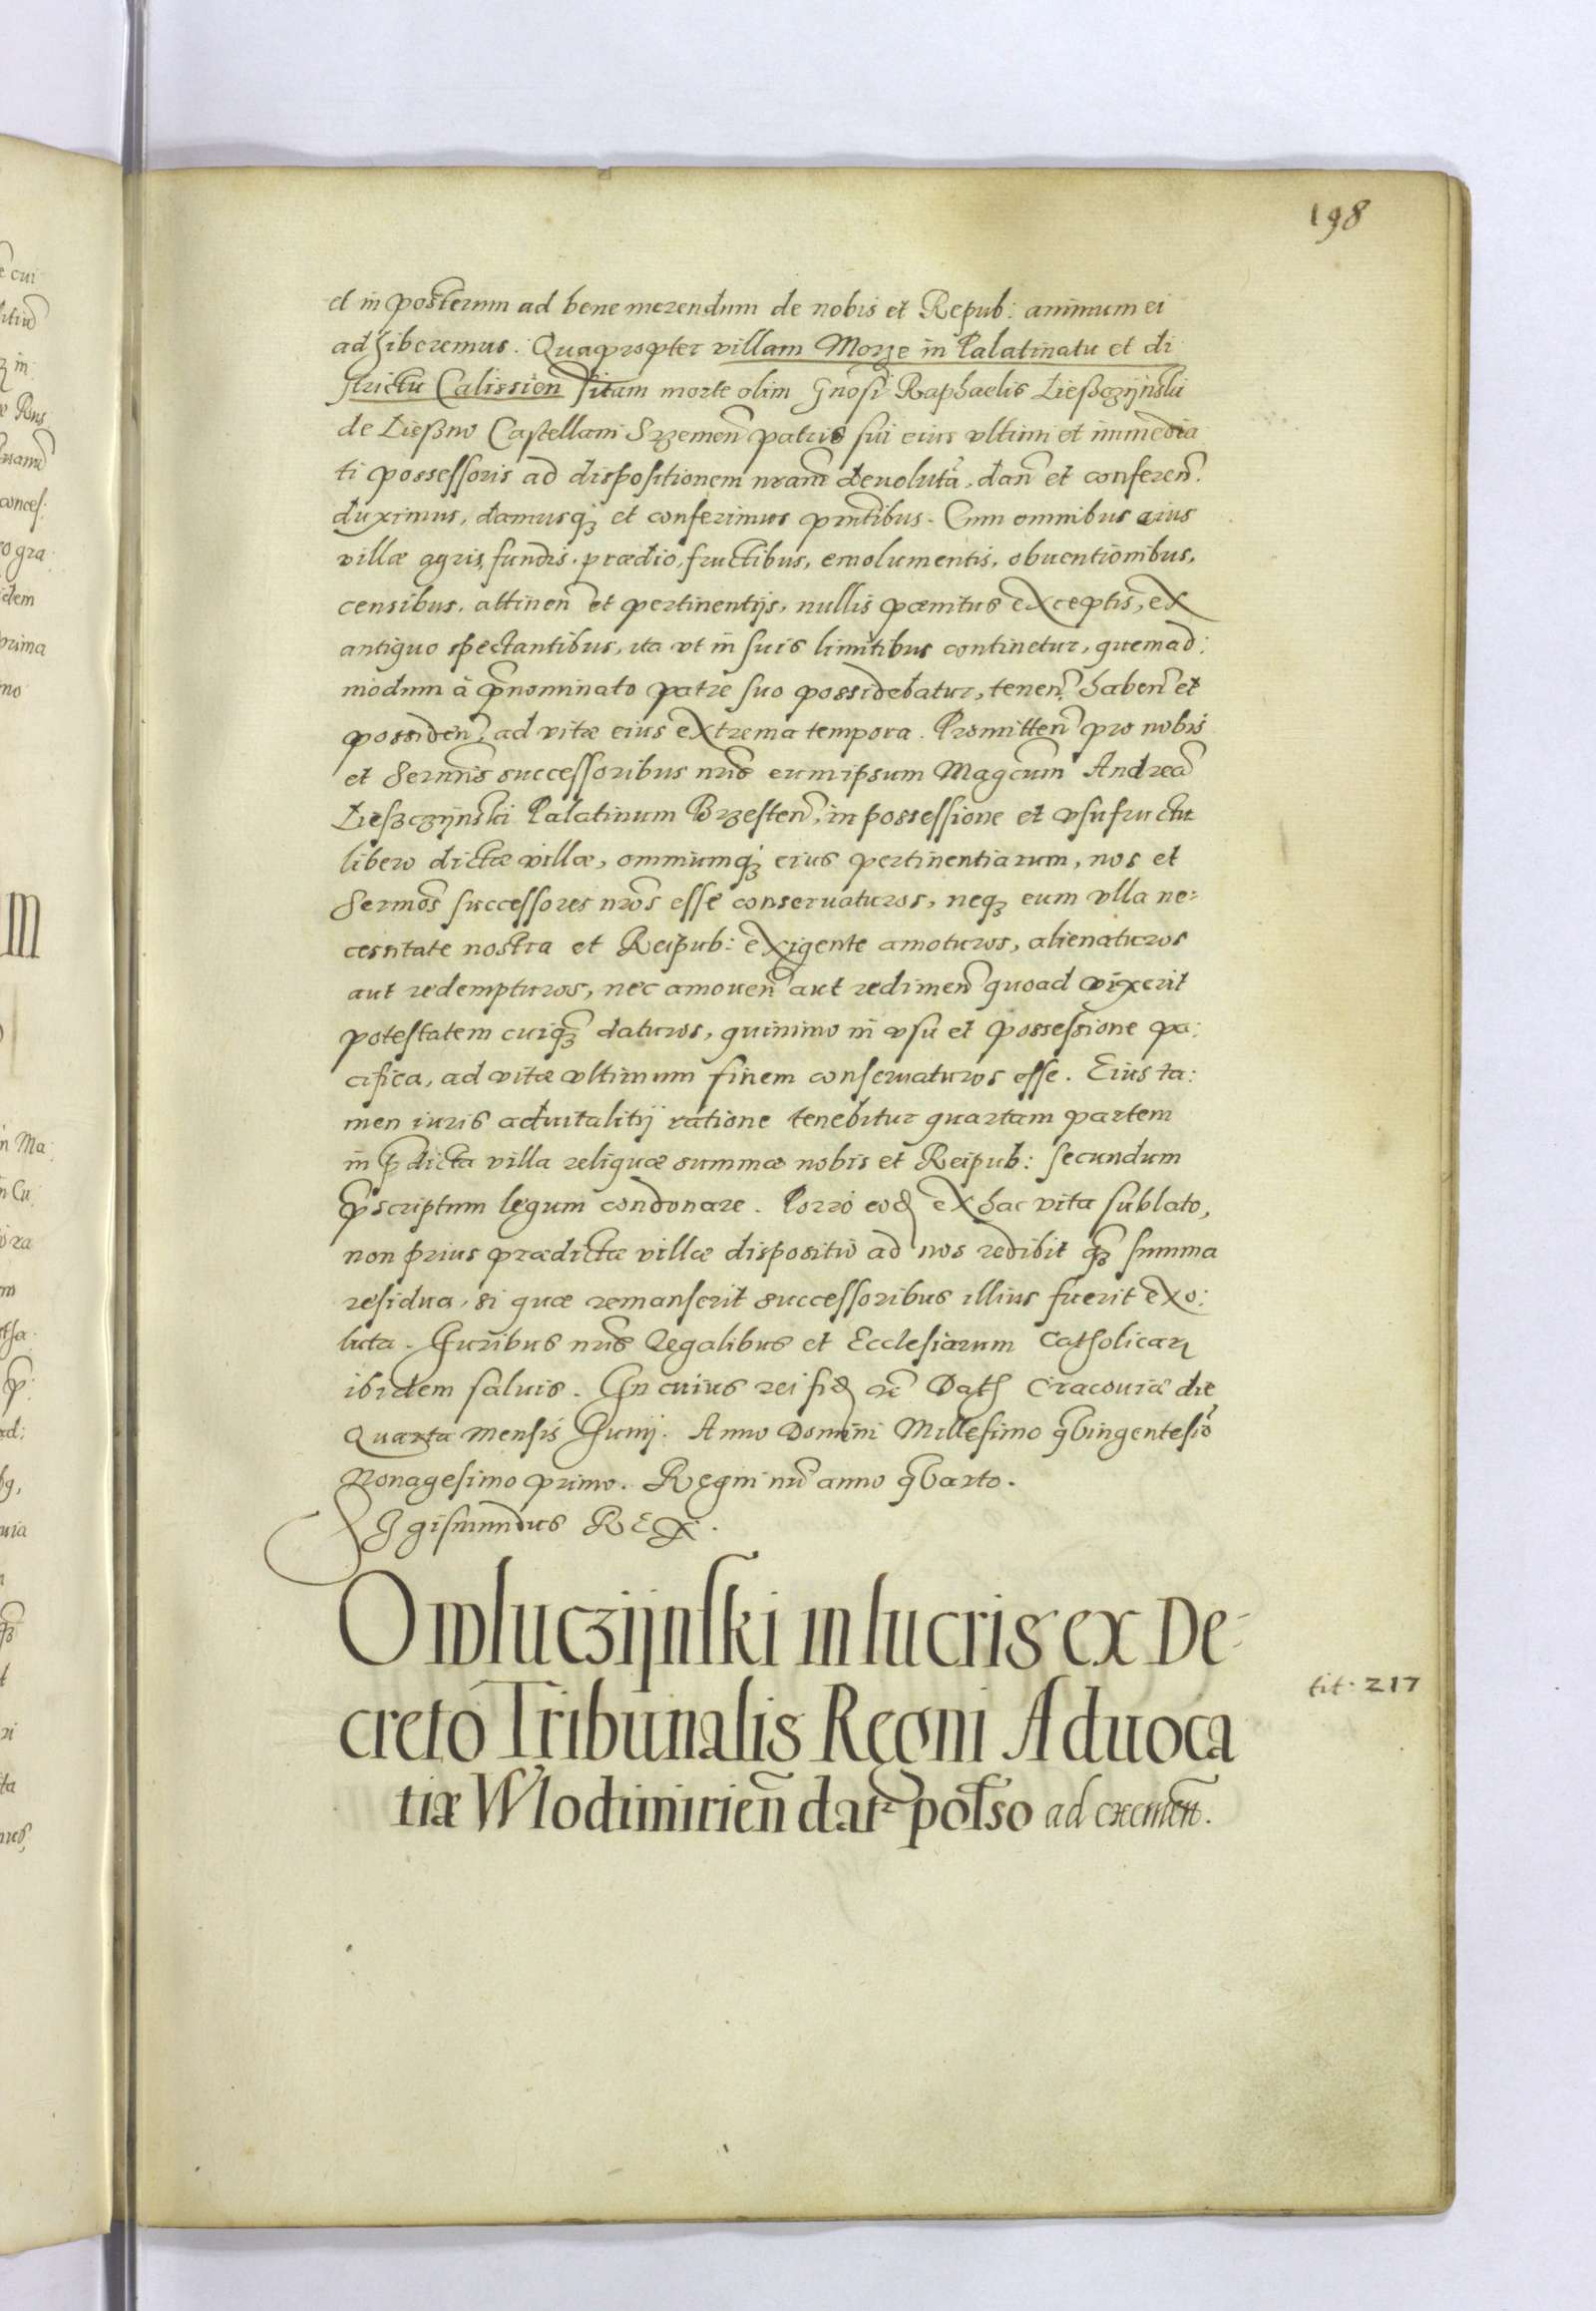 198
et in posterum ad bene merendum de nobis et Repub: animum ei
adhiberemus. Quapropter villam Morze in Palatinatu et di
strictu Calissien̄ sitam morte olim Gn̄osi Raphaelis Liesczijnski
de Liesno Castellani Srzemen̄ patris sui eius vltimi et immedia
ti possessoris ad dispositionem nr̄am deuolutā, dan̄ et conferen̄
duximus, damusq; et conferimus pn̄tibus. Cum omnibus eius
villæ agris, fundis, prædio, fructibus, emolumentis, obuentionibus,
censibus, attinen̄ et pertinentijs, nullis pœnitus exceptis, ex
antiquo spectantibus, ita vt in suis limitibus continetur, quemad:
modum à p̄nominato patre suo possidebatur, tenen̄ haben̄ et
possiden̄ ad vitæ eius extrema tempora. Promitten̄ pro nobis
et Sermīs successoribus nr̄is eum ipsum Magcum Andreā
Liesczijnski Palatinum Brzesten̄, in possessione et vsufructu
libero dictæ villæ, omniumq; eius pertinentiarum, nos et
Sermōs successores nr̄os esse conseruaturos, neq; eum vlla ne:
cessitate nostra et Reipub: exigente amoturos, alienaturos
aut redempturos, nec amouen̄ aut redimen̄ quoad vixerit
potestatem cuiq; daturos, quinimo in vsu et possessione pa:
cifica, ad vitæ vltimum finem conseruaturos esse. Eius ta:
men iuris aduitalitij ratione tenebitur quartam partem
in p̄dicta villa reliquæ summæ nobis et Reipub: secundum
p̄scriptum legum condonare. Porro eod ex hac vita sublato,
non prius prædictæ villæ dispositio ad nos redibit q̄ summa
residua, si quæ remanserit successoribus illius fuerit exo:
luta. Juribus nr̄is Regalibus et Ecclesiarum Catholicar
ibidem saluis. In cuius rei fid etc̄ Dat Cracouiæ die
Quarta mensis Junij. Anno Domini Millesimo qūingentesīo
Nonagesimo primo. Regni nr̄i anno qūarto.
Sigismundus REX.
Owluczijnski in lucris ex De-
creto Tribunalis Regni Aduoca
tiæ Wlodimirien̄ datr pōsso ad exemen̄.
tit. 217